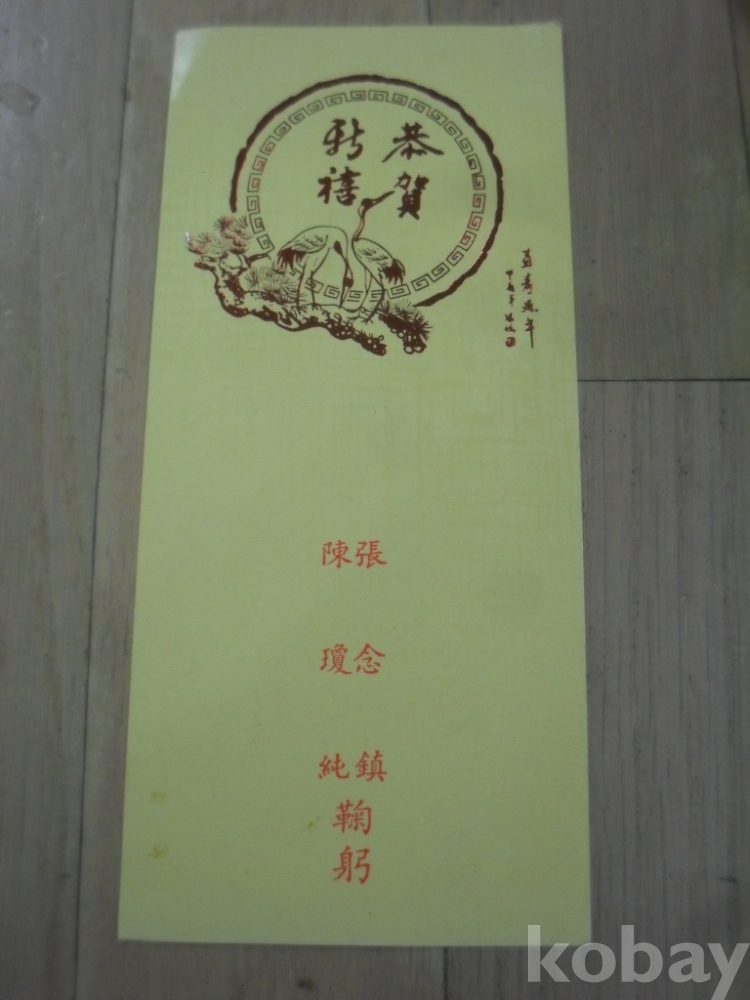 恭賀
新禧
張念鎮
陳瓊純
鞠躬
kobay